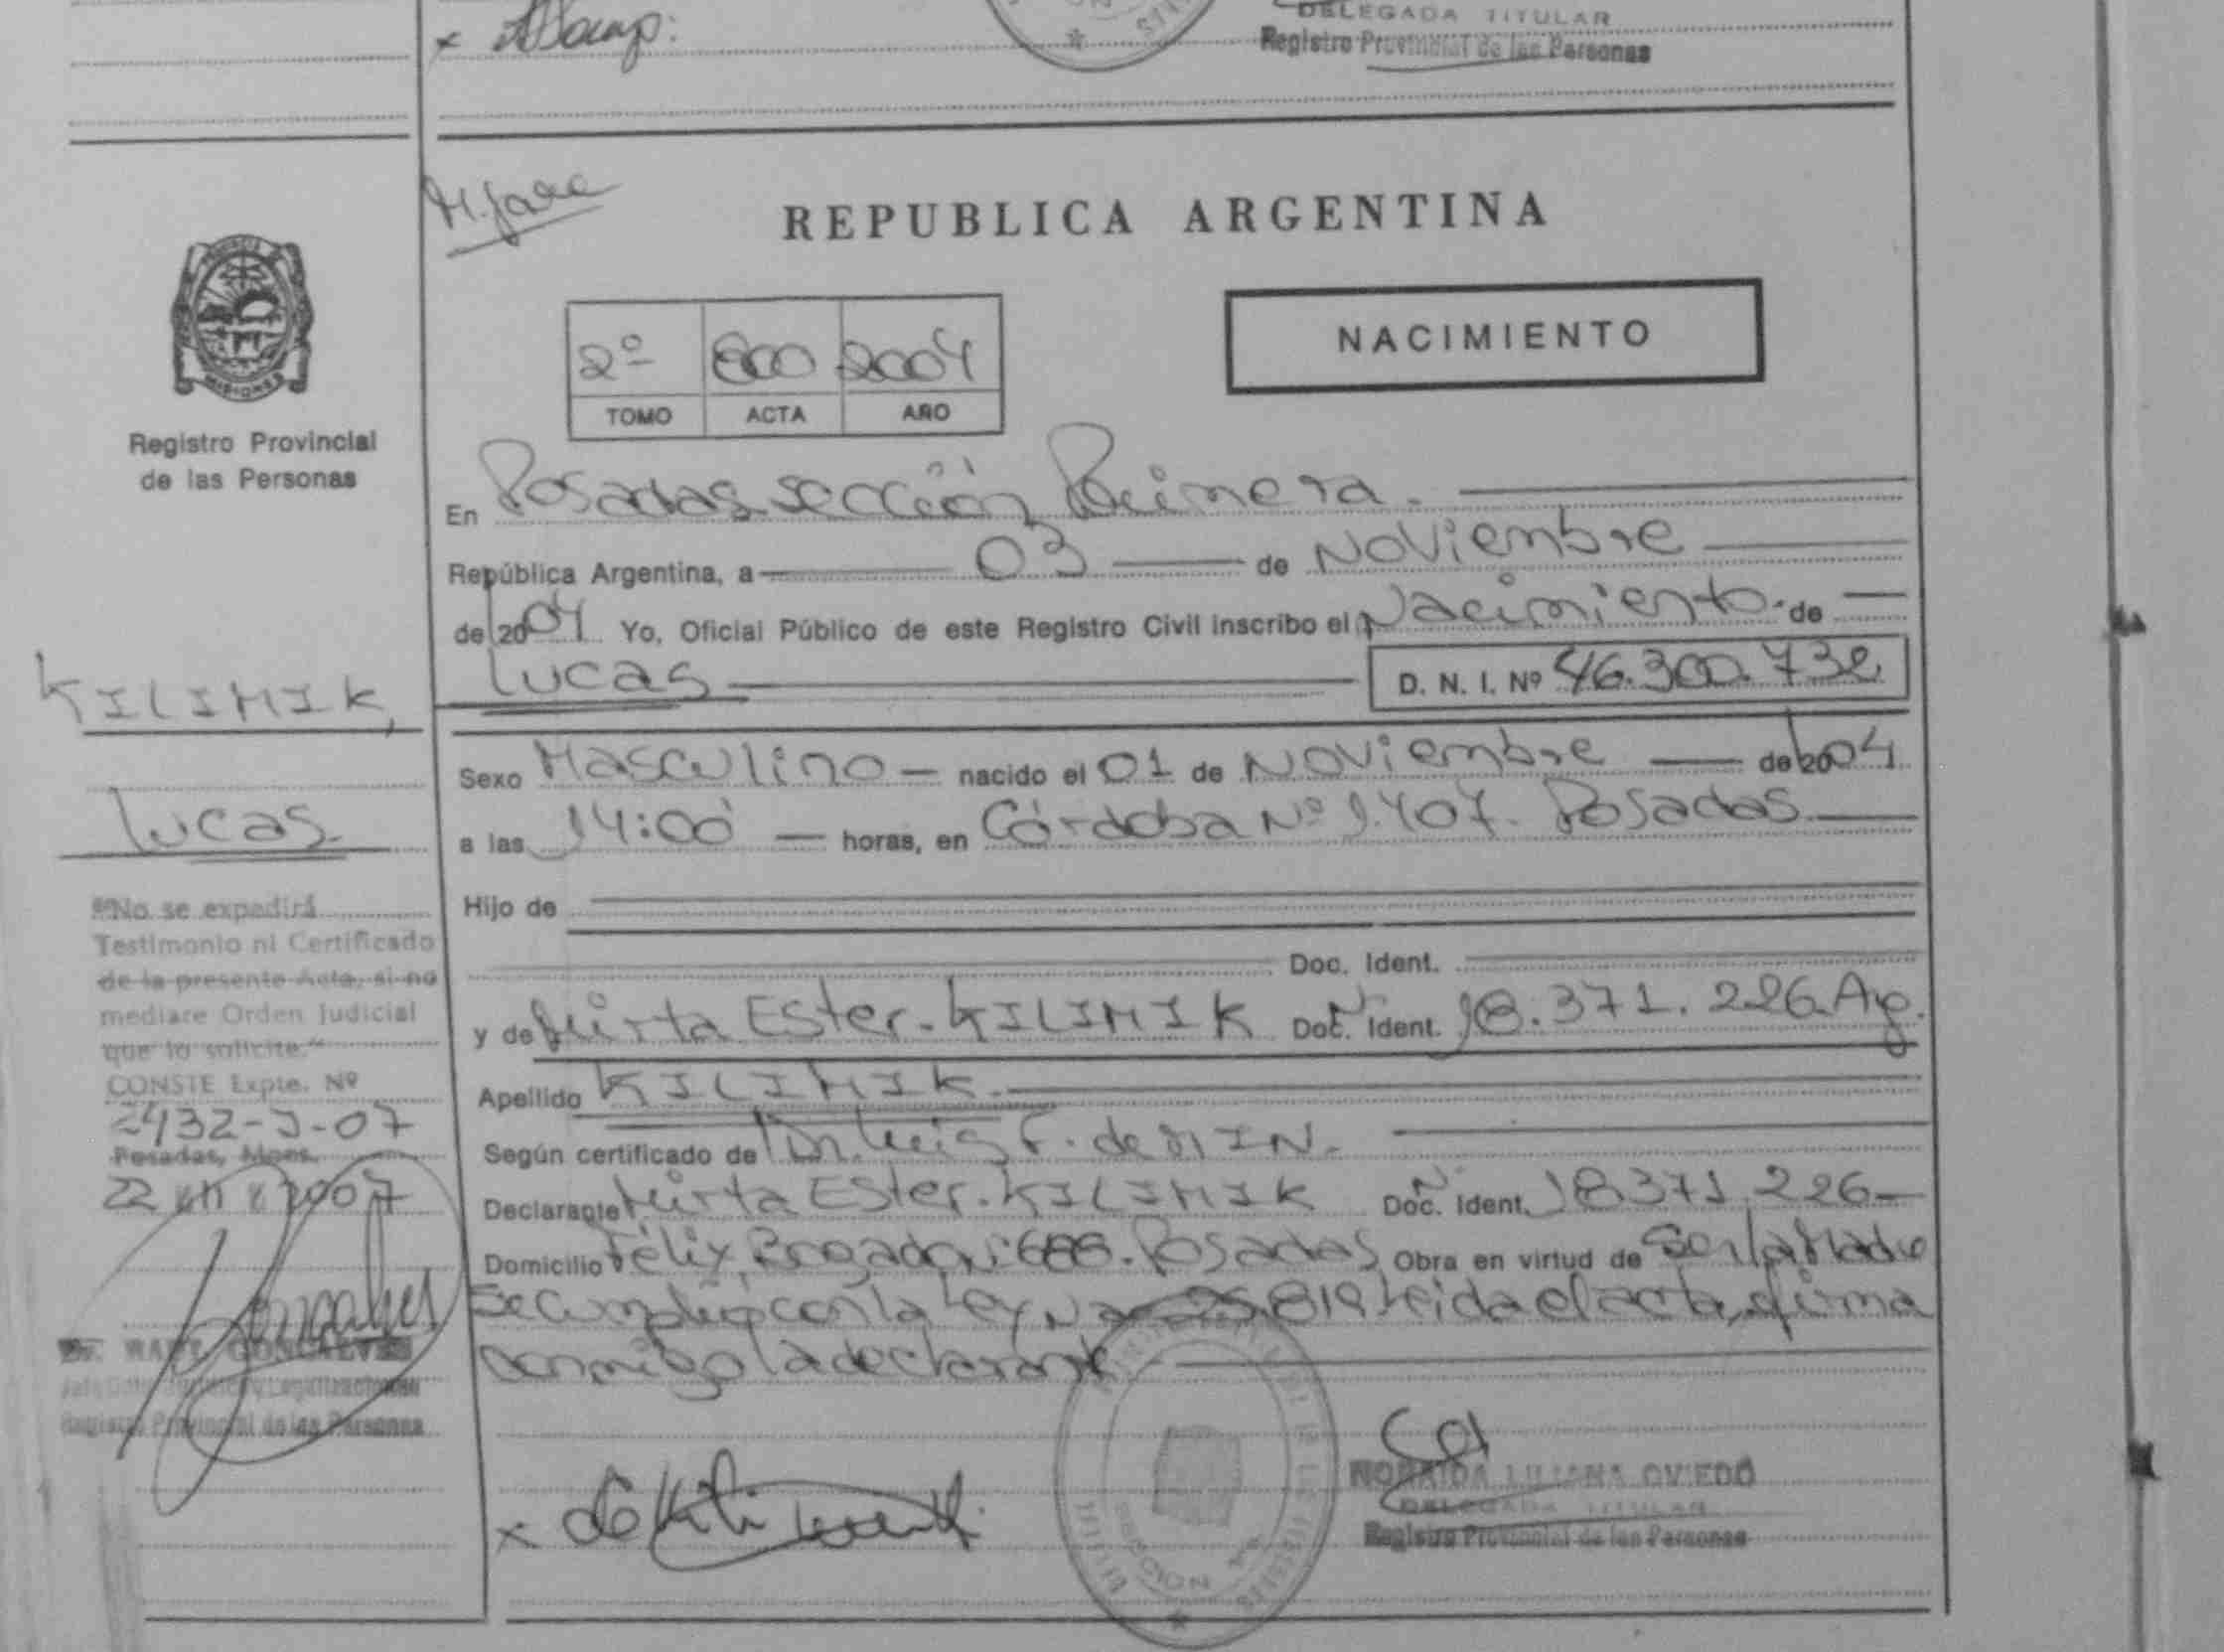 DELEGADA TITULAR
Registro Provincial de las Personas
REPUBLICA ARGENTINA
NACIMIENTO
2º 800 2004
TOMO ACTA AÑO
Registro Provincial
de las Personas
En Posadas sección Primera.
República Argentina, a 03 de Noviembre
de 2004 Yo, Oficial Público de este Registro Civil inscribo el Nacimiento de
Lucas D. N. I. Nº 46.300.732
KILIMIK,
Lucas
Sexo Masculino nacido el 01 de Noviembre de 2004
a las 14:00 horas, en Córdoba Nº 1.407. Posadas
Hijo de
Doc. Ident.
y de Mirta Ester KILIMIK Doc. Ident. Nº 18.371.226 Ag.
Apellido KILIMIK
Según certificado de Dr. Luis F.
Declarante Mirta Ester KILIMIK Doc. Ident. Nº 18.371.226
Domicilio Félix Bogado 688. Posadas Obra en virtud de Ser la Madre
Se cumplió con la Ley Nº 25.819 Leida el acta, firma
conmigo la declarante
"No se expedirá
Testimonio ni Certificado
de la presente Acta, si no
mediare Orden Judicial
que lo solicite."
CONSTE Expte. Nº
2432-J-07
Posadas, Mnes.
22 2007
GONCALVES
Registro Provincial de las Personas
LILIANA OVIEDO
DELEGADA TITULAR
Registro Provincial de las Personas